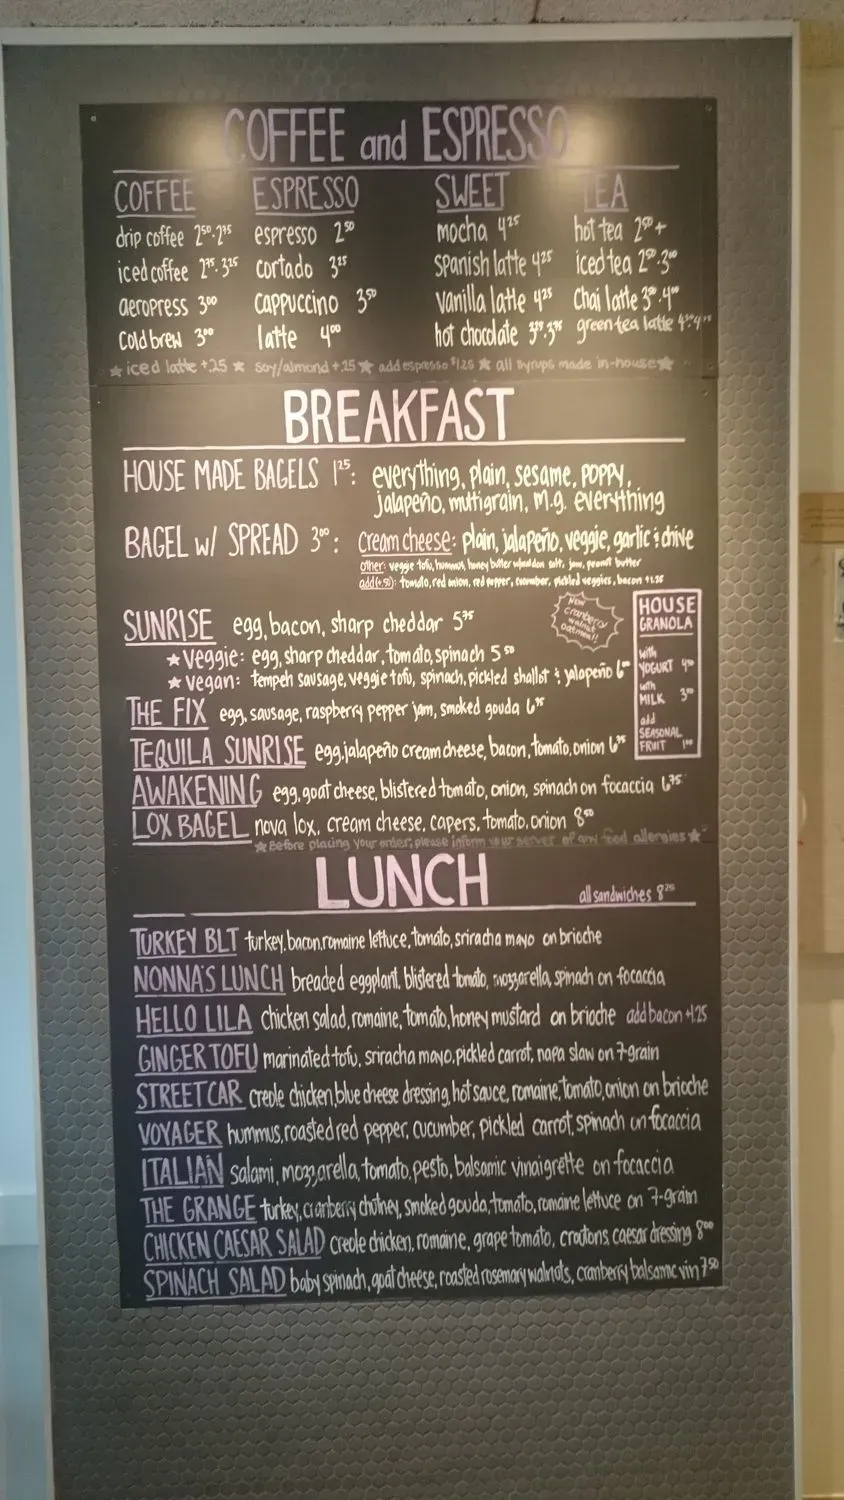 COFFEE and ESPRESSO
COFFEE
drip coffee 2⁵⁰·2⁷⁵
iced coffee 2⁷⁵·3²⁵
aeropress 3⁰⁰
cold brew 3⁰⁰
ESPRESSO
espresso 2⁵⁰
cortado 3²⁵
cappuccino 3⁵⁰
latte 4⁰⁰
SWEET
mocha 4²⁵
spanish latte 4²⁵
vanilla latte 4²⁵
hot chocolate
TEA
hot tea 2⁵⁰+
iced tea 2⁵⁰·3⁰⁰
Chai latte 3⁵⁰·4⁰⁰
green tea latte
★ iced latte +.25 ★ soy/almond +.25 ★ add espresso $1.25 ★ all syrups made in-house ★
BREAKFAST
HOUSE MADE BAGELS 1²⁵: everything, plain, sesame, poppy,
jalapeño, multigrain, m.g. everything
BAGEL w/ SPREAD 3⁰⁰: Cream cheese: plain, jalapeño, veggie, garlic & chive
other: veggie tofu, hummus, honey butter w/maldon salt, jam, peanut butter
add(+.50): tomato, red onion, red pepper, cucumber, pickled veggies, bacon +1.25
SUNRISE egg, bacon, sharp cheddar 5⁷⁵
★ Veggie: egg, sharp cheddar, tomato, spinach 5⁵⁰
★ vegan: tempeh sausage, veggie tofu, spinach, pickled shallot & jalapeño 6⁰⁰
NEW
cranberry
walnut
oatmeal!!
HOUSE
GRANOLA
with
YOGURT 4⁵⁰
with
MILK 3⁵⁰
add
SEASONAL
FRUIT 1⁰⁰
THE FIX egg, sausage, raspberry pepper jam, smoked gouda 6⁷⁵
TEQUILA SUNRISE egg, jalapeño cream cheese, bacon, tomato, onion 6⁷⁵
AWAKENING egg, goat cheese, blistered tomato, onion, spinach on focaccia 6⁷⁵
LOX BAGEL nova lox, cream cheese, capers, tomato, onion 8⁵⁰
★ Before placing your order, please inform your server of any food allergies ★
LUNCH all sandwiches 8²⁵
TURKEY BLT turkey, bacon, romaine lettuce, tomato, sriracha mayo on brioche
NONNA'S LUNCH breaded eggplant, blistered tomato, mozzarella, spinach on focaccia
HELLO LILA chicken salad, romaine, tomato, honey mustard on brioche add bacon +1.25
GINGER TOFU marinated tofu, sriracha mayo, pickled carrot, napa slaw on 7-grain
STREETCAR creole chicken, blue cheese dressing, hot sauce, romaine, tomato, onion on brioche
VOYAGER hummus, roasted red pepper, cucumber, pickled carrot, spinach on focaccia
ITALIAN salami, mozzarella, tomato, pesto, balsamic vinaigrette on focaccia
THE GRANGE turkey, cranberry chutney, smoked gouda, tomato, romaine lettuce on 7-grain
CHICKEN CAESAR SALAD creole chicken, romaine, grape tomato, croutons, caesar dressing 8⁰⁰
SPINACH SALAD baby spinach, goat cheese, roasted rosemary walnuts, cranberry balsamic vin 7⁵⁰